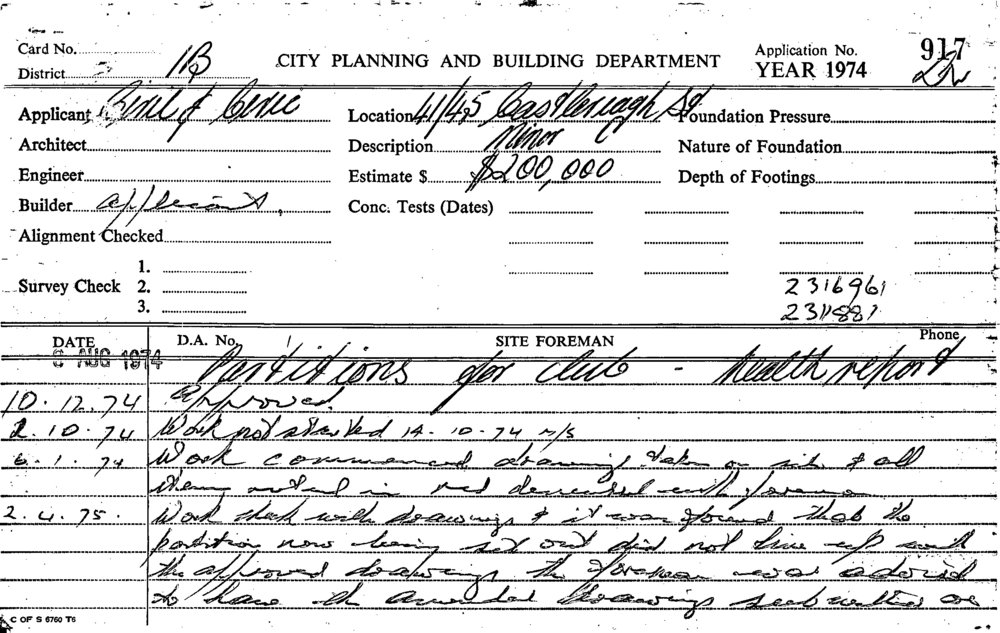 Card No.
District 1B
CITY PLANNING AND BUILDING DEPARTMENT
Application No. 917
YEAR 1974
Applicant Civil & Civic
Location 41/45 Castlereagh St
Foundation Pressure
Architect
Description Minor
Nature of Foundation
Engineer
Estimate $ $200,000
Depth of Footings
Builder applicant,
Conc. Tests (Dates)
Alignment Checked
1.
Survey Check 2.
3.
2316961
2311881
DATE D.A. No. SITE FOREMAN Phone
AUG 1974 Partitions for club - health report
10.12.74 Approved.
2.10.74 Work not started 14-10-74 n/s
6.1.74 Work commenced drawings on site & all
them noted in red discussed with foreman
2.4.75. Work check with drawings & it was found that the
partition now being set out did not line up with
the approved drawings the foreman was advised
to have the amended drawings submitted
C OF S 6760 T6